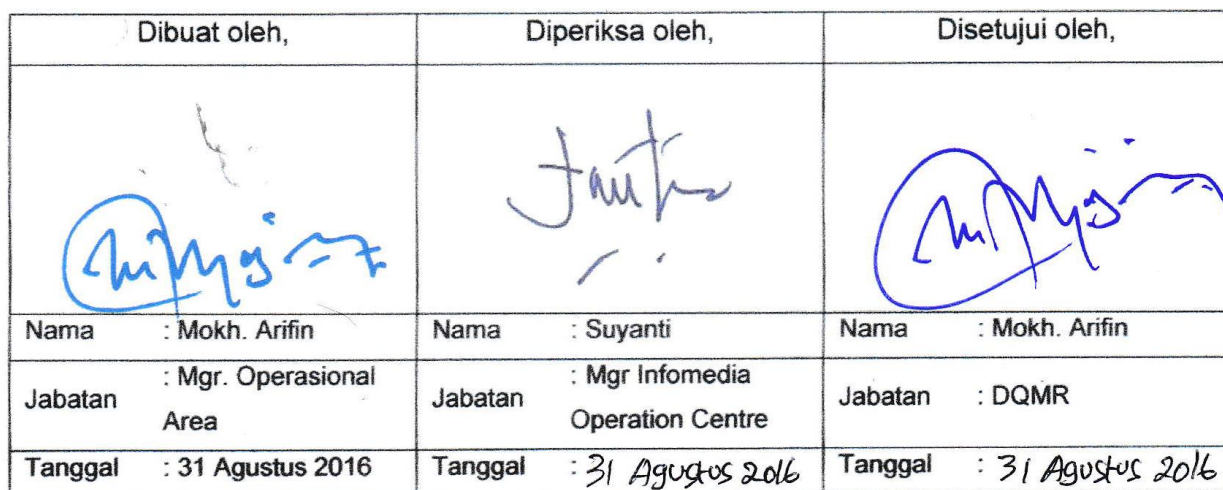 Dibuat oleh, Diperiksa oleh, Disetujui oleh,
Nama : Mokh. Arifin Nama : Suyanti Nama : Mokh. Arifin
Jabatan : Mgr. Operasional Area Jabatan : Mgr Infomedia Operation Centre Jabatan : DQMR
Tanggal : 31 Agustus 2016 Tanggal : 31 Agustus 2016 Tanggal : 31 Agustus 2016